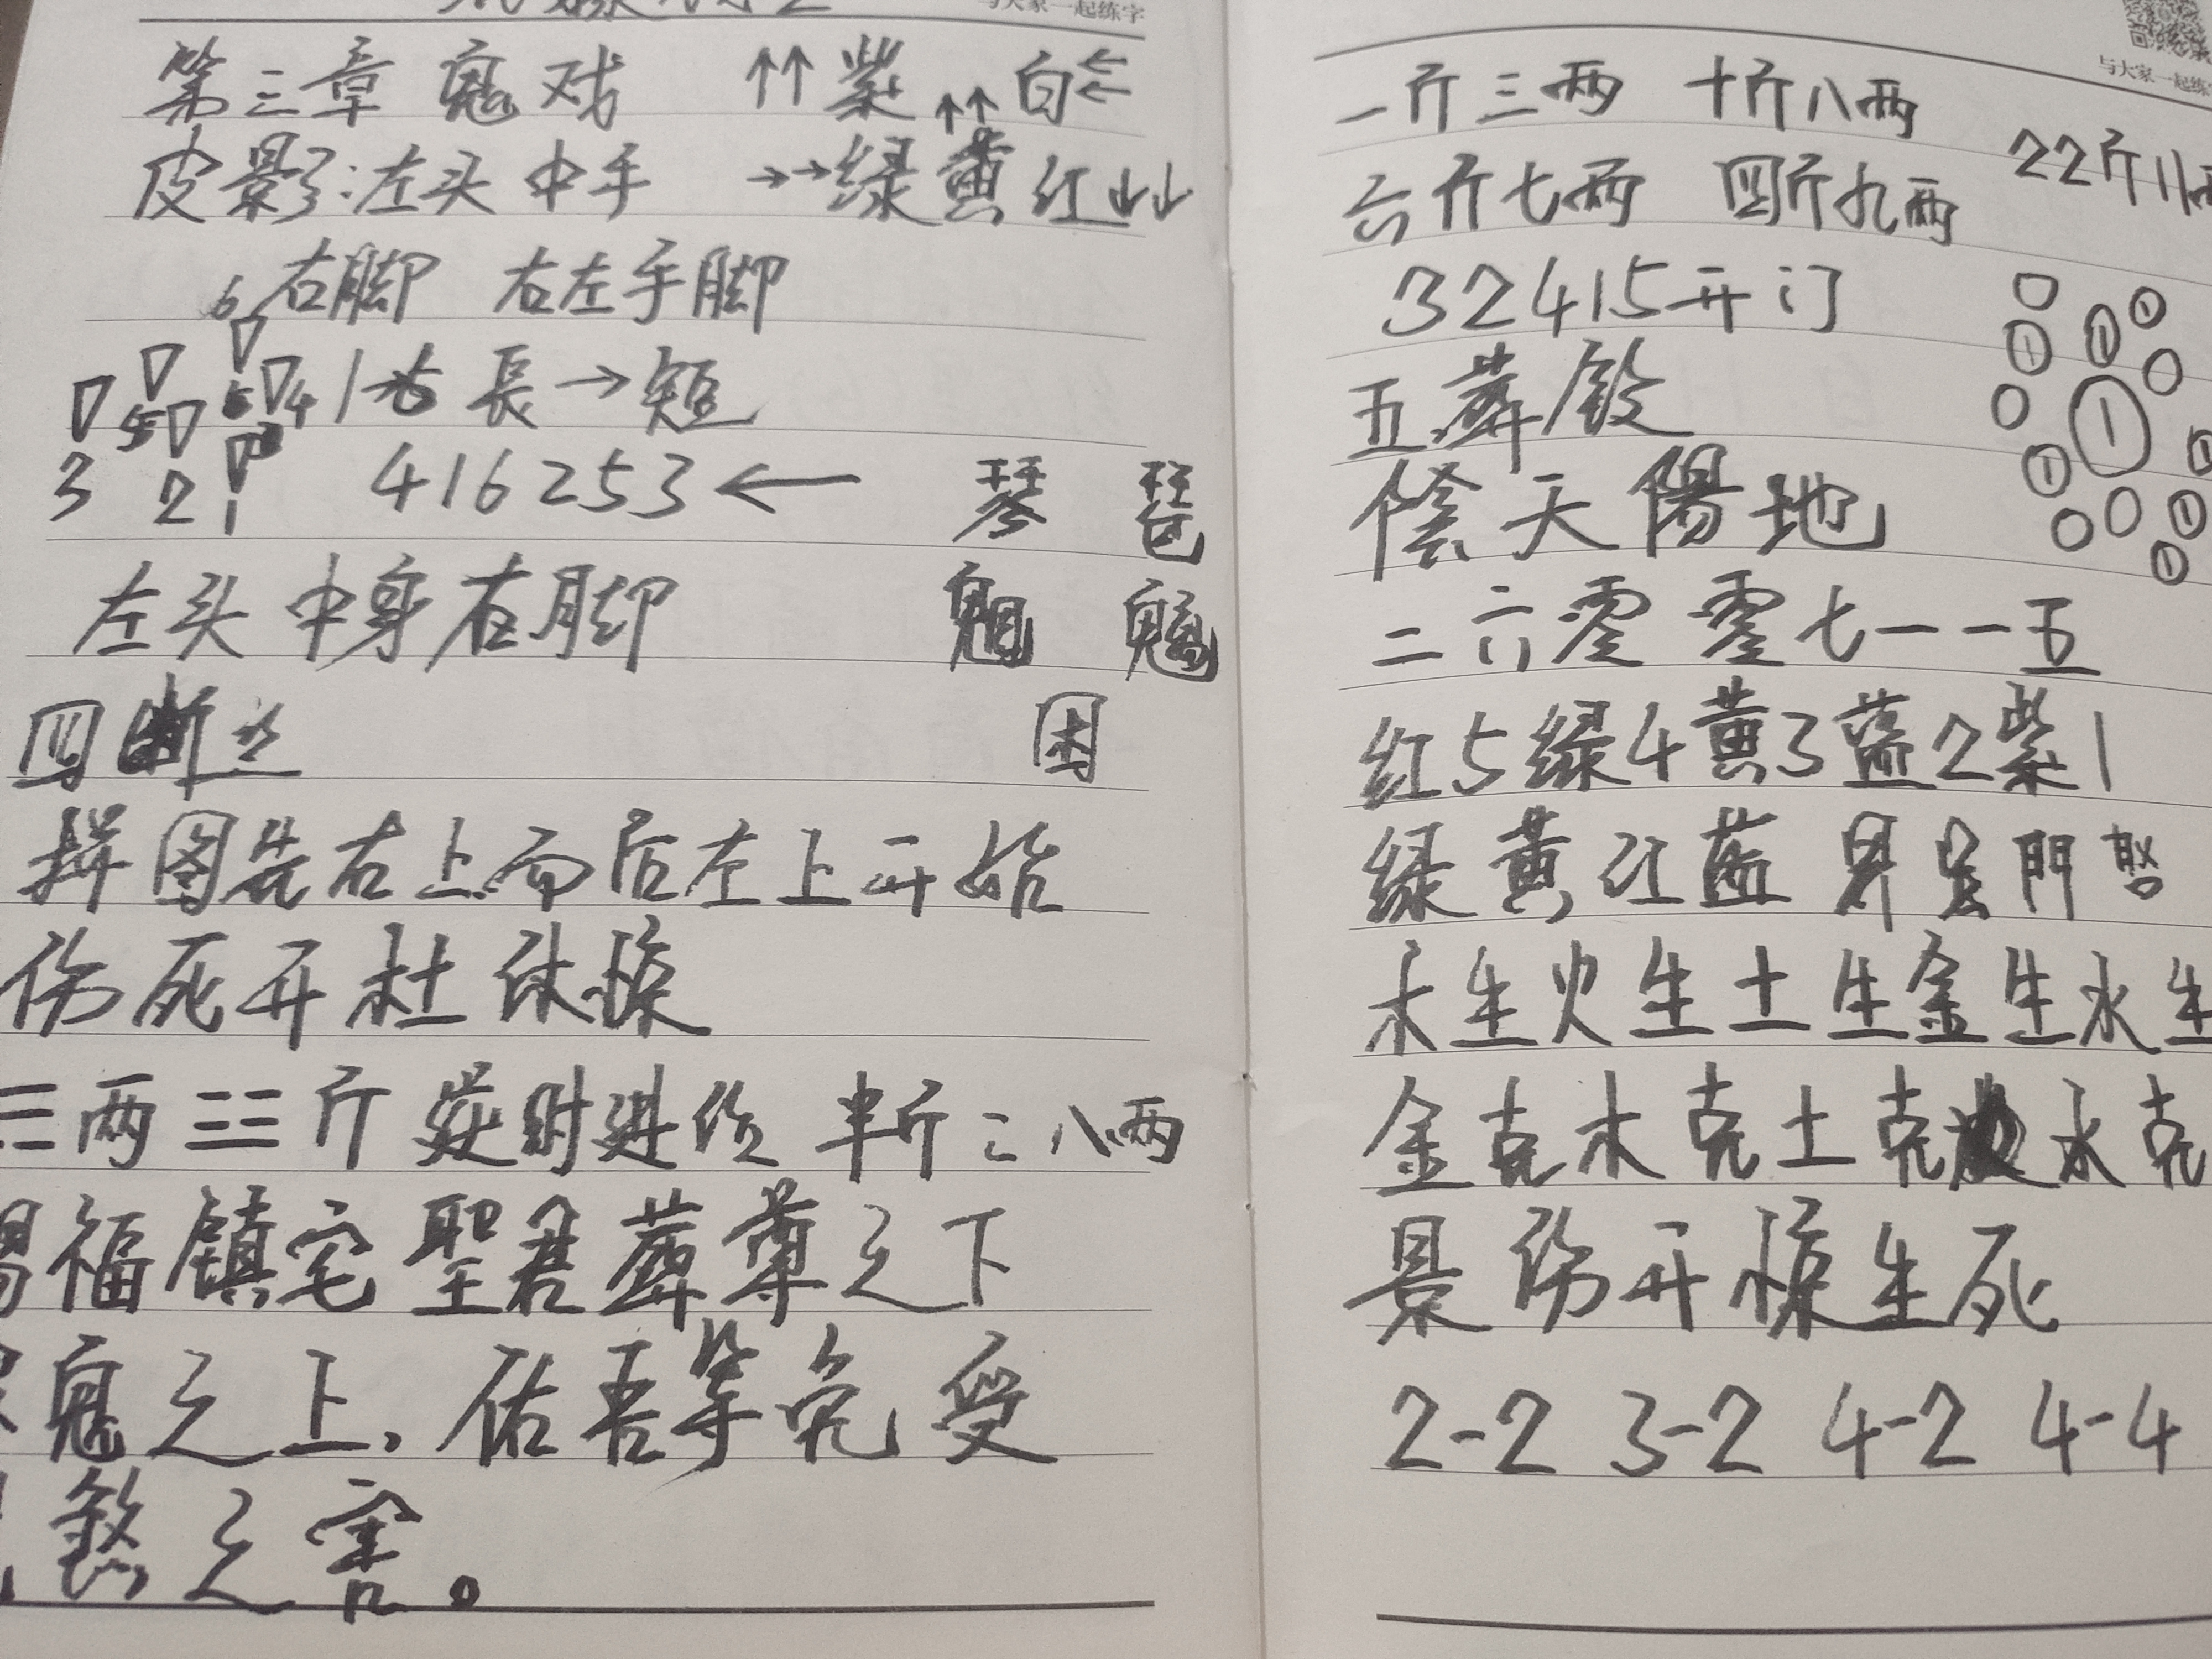 与大家一起练字
第三章 鬼戏 ↑↑紫 ↑↑ 白←←
皮影:左头 中手 →→绿 黄 红↓↓
右脚 右左手脚
6
5 4 1 長→短
3 2 1 416253←
琴 琶
左头 中身 右脚
魑
四断 困
拼图先右上而后左上开始
伤死开杜休惊
两 三三 斤 发财进 半斤 = 八两
福镇宅 聖君 尊之下
鬼之上,佑吾等免受
煞之害。
与大家一起练
一斤三两 十斤八两
22斤11两
六斤七两 四斤九两
32415开门
五
陰天陽地
二六零零七一一五
红5绿4黄3蓝2紫1
绿黄红蓝 界 門
木生火生土生金生水生
金克木克土克水克
景伤开惊生死
2-2 3-2 4-2 4-4